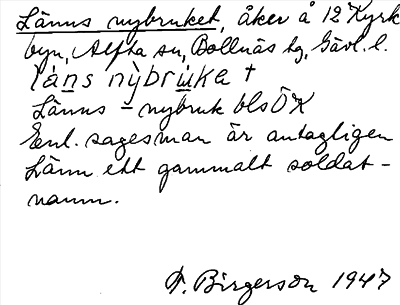 Länns nybruket, åker å 12 Kyrk
byn, Alfta sn, Bollnäs tg, Gävl. l.
Länns = nybruk bls ÖK
Enl. sagesman är antagligen
Länn ett gammalt soldat-
namn.
F. Birgerson 1947